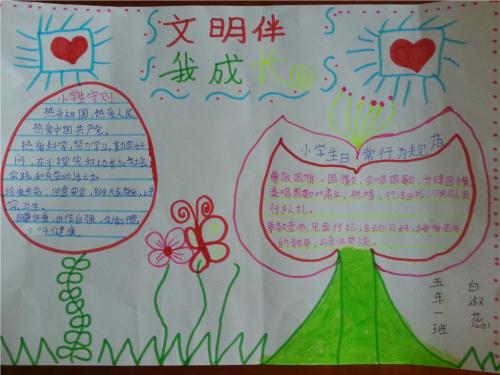 文明伴
我成长
小学生守则
热爱祖国,热爱人民
热爱中国共产党。
热爱科学,努力学习,勤思好
问,
实践和有益的活动。
珍爱生命,注意安全,锻炼身体,讲
究卫生。
自尊自爱,自信自强,生活习惯
文明健康。
小学生日常行为规范
尊敬国旗、国徽,会唱国歌,升降国旗、
奏唱国歌时肃立、脱帽、行注目礼,少先队员
行队礼。
尊敬老师,见面行礼,主动问好,接受老师
的教导,与老师交流。
五年一班
白淑蕊